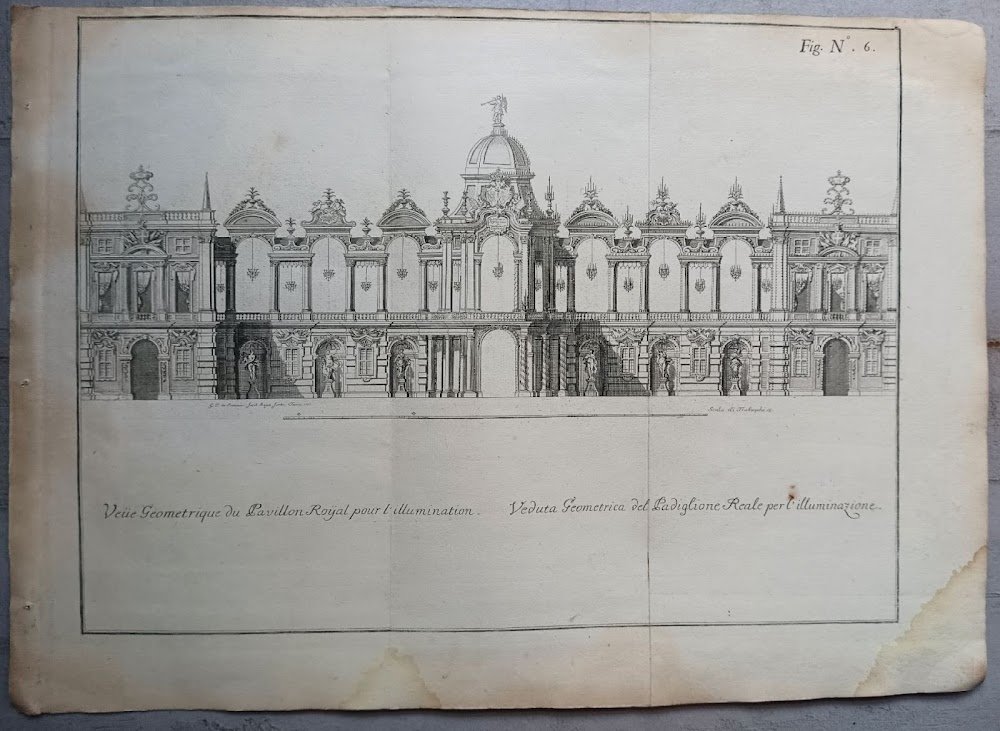 Fig. N°. 6.
Scala di
Veüe Geometrique du Pavillon Royal pour l'illumination.
Veduta Geometrica del Padiglione Reale per l'illuminazione.